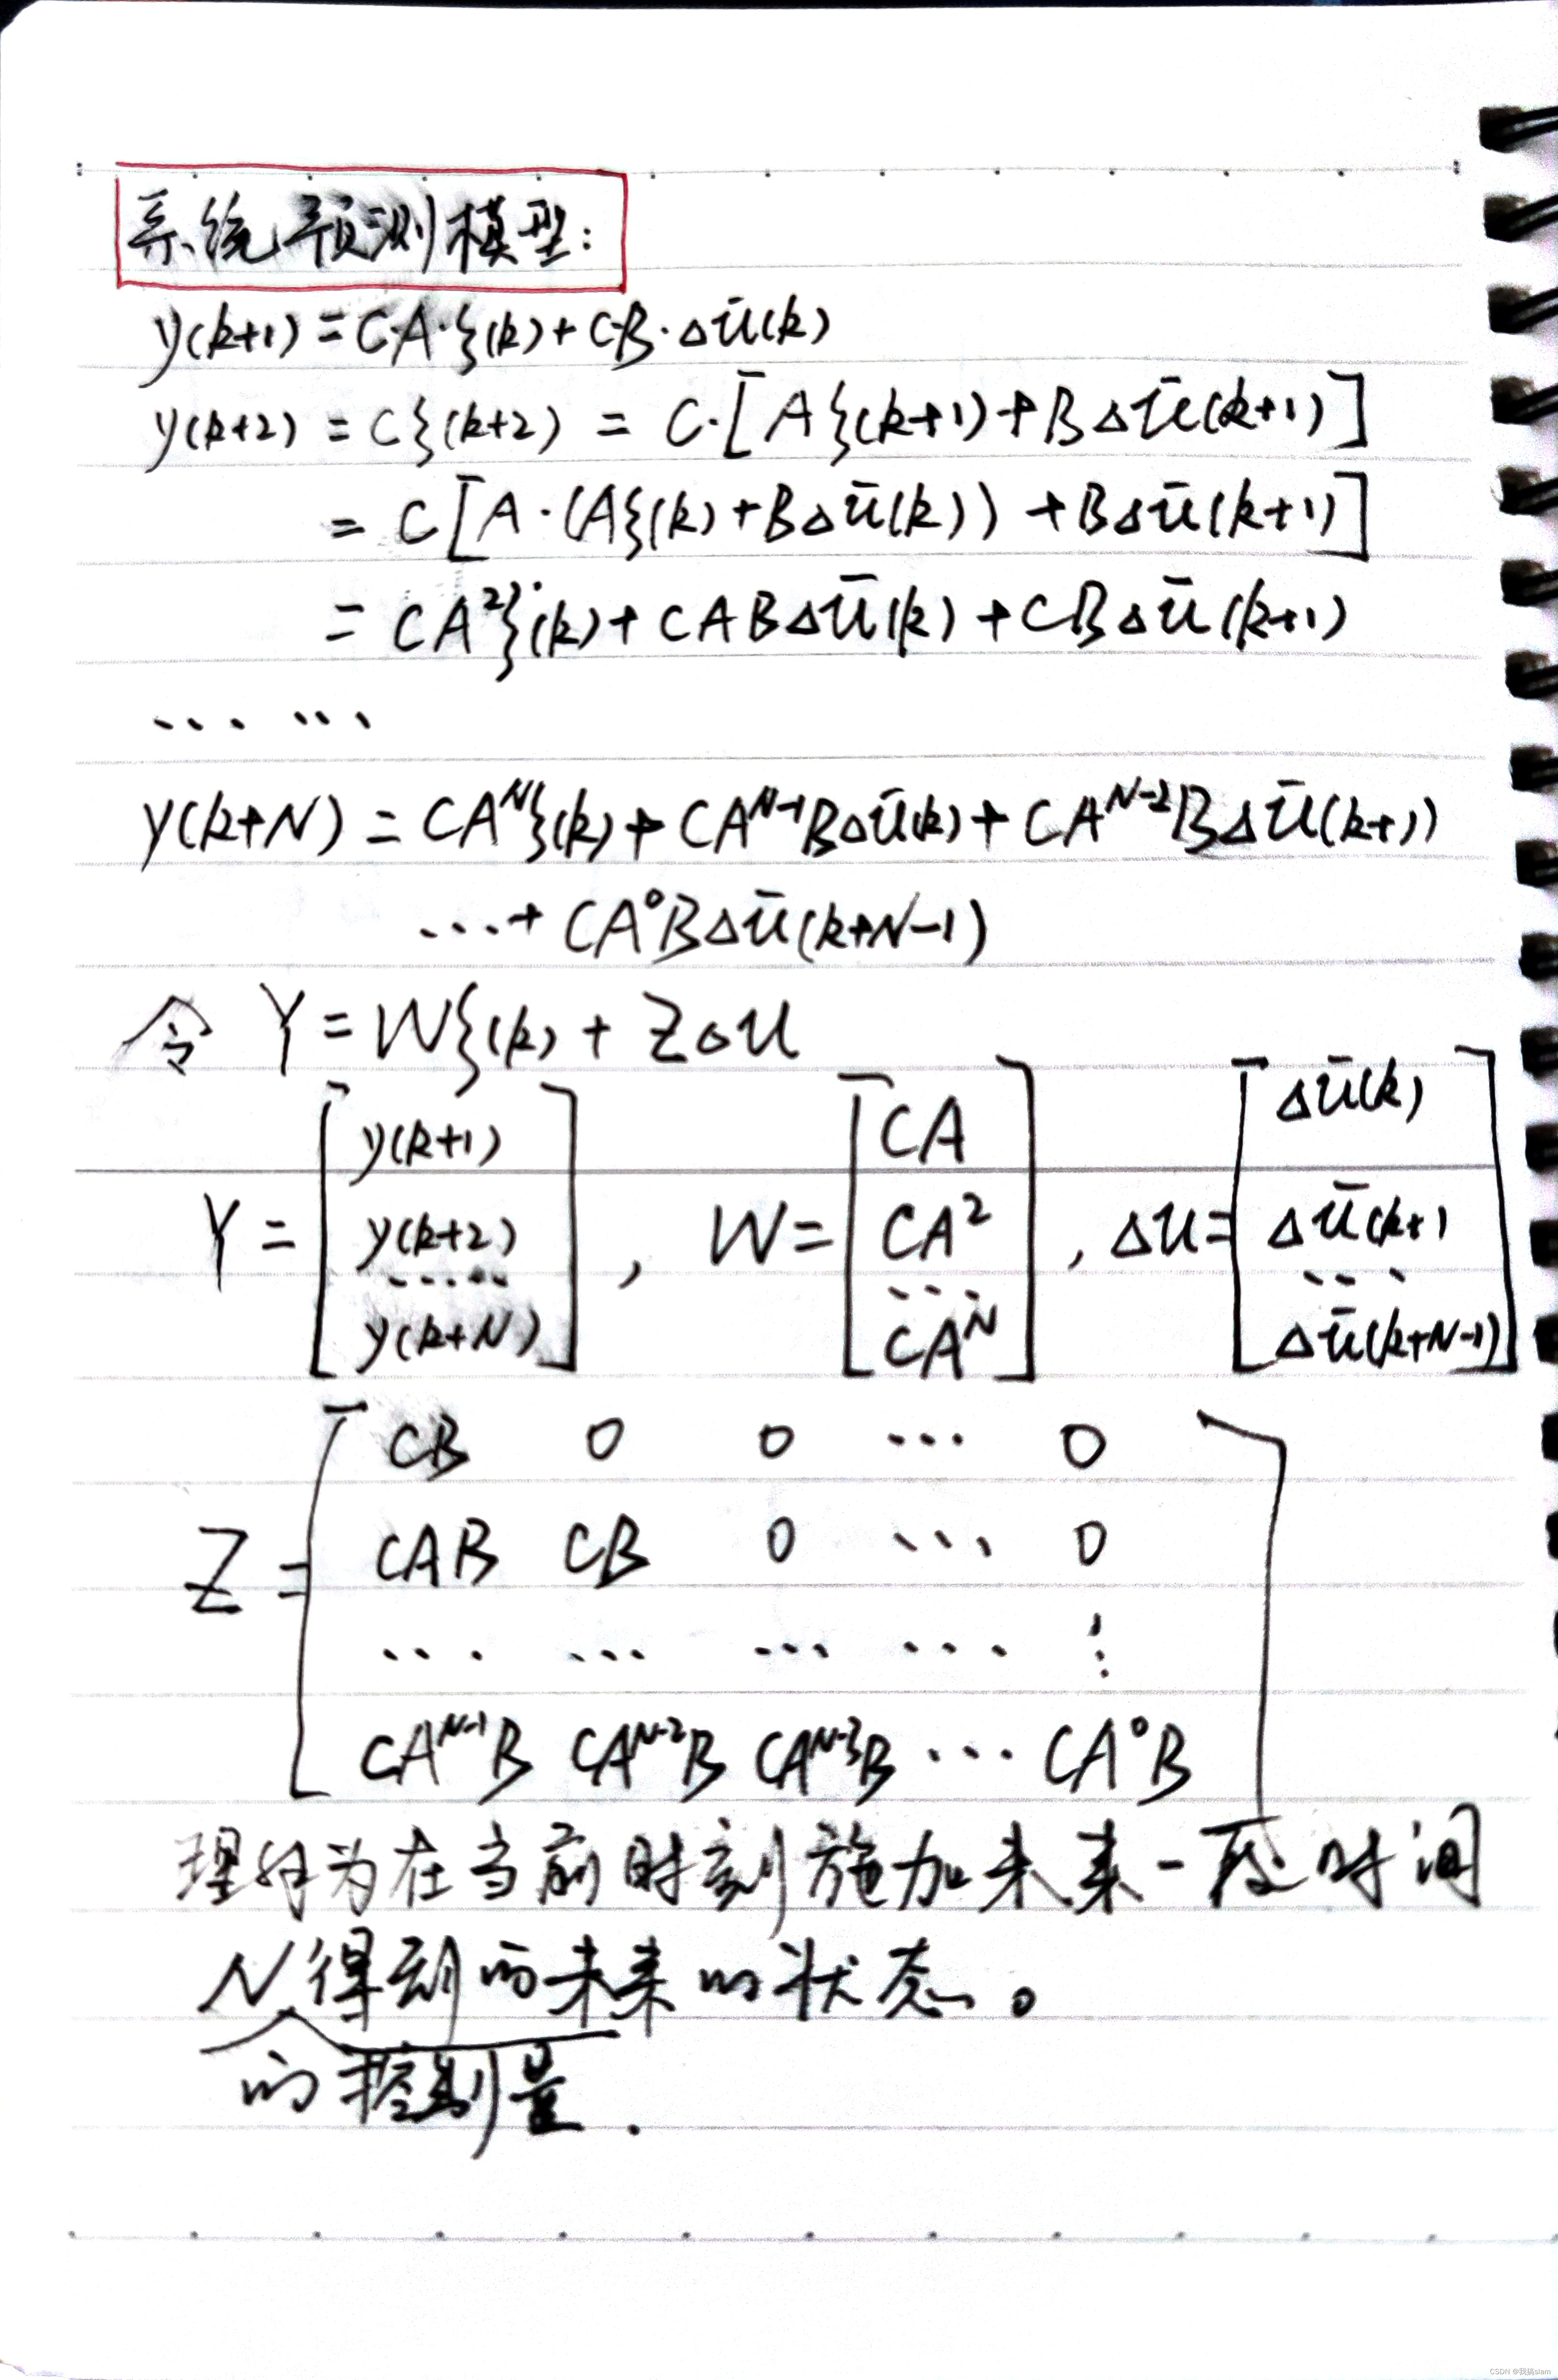 系统预测模型:
y(k+1) = C·A·ξ(k) + C·B·Δū(k)
y(k+2) = Cξ(k+2) = C·[Aξ(k+1) + BΔū(k+1)]
= C[A·(Aξ(k) + BΔū(k)) + BΔū(k+1)]
= CA²ξ(k) + CABΔū(k) + CBΔū(k+1)
... ...
y(k+N) = CA^Nξ(k) + CA^{N-1}BΔū(k) + CA^{N-2}BΔū(k+1)
...+ CA⁰BΔū(k+N-1)
令 Y = Wξ(k) + ZΔu
Y = [y(k+1) y(k+2) ..... y(k+N)], W = [CA CA² ... CA^N], Δu = [Δū(k) Δū(k+1 ... Δū(k+N-1)]
Z = [CB 0 0 ... 0
CAB CB 0 ... 0
... ... ... ... ⋮
CA^{N-1}B CA^{N-2}B CA^{N-3}B ... CA⁰B]
理解为在当前时刻施加未来一段时间
N得到的未来的状态。
的控制量.
CSDN @我搞slam